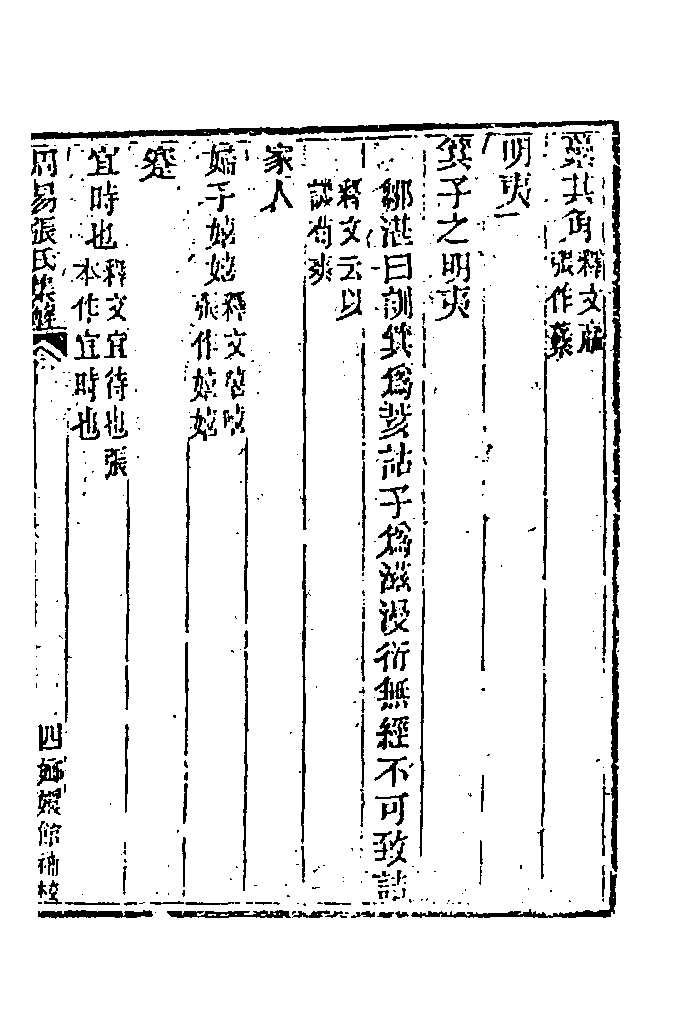 其角釋文羸
張作虆
明夷
箕子之明夷
鄒湛曰訓箕爲荄詁子爲滋漫衍無經不可致詰
釋文云以
譏荀爽
家人
婦子嬉嬉釋文嘻嘻
張作嬉嬉
蹇
宜時也釋文宜待也張
本作宜時也
周易張氏集解 四 嫏嬛館補校